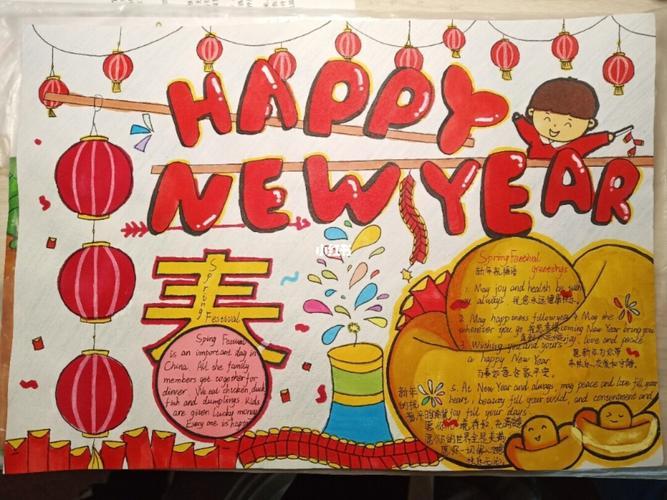 HAPPY
NEW YEAR
小红书
春
Spring
Festival
Sping Fastival
is an important day in
China. All the family
members get together for
dinner. We eat chicken, duck
fish and dumplings. Kids
are given lucky money.
Every one is happy
Spring Faecival
greetings
新年祝福语
1. May joy and health be with
you always.
2. May happiness follow you
wherever you go
3. Wishing you and yours
a happy New Year
万事如意合家平安.
4 May the
coming New Year bring you
joy, love and peace
愿新年为你带
5. At New Year and always, may peace and love fill your
heart, beauty fill your world, and contentment and
joy fill your days.
新年